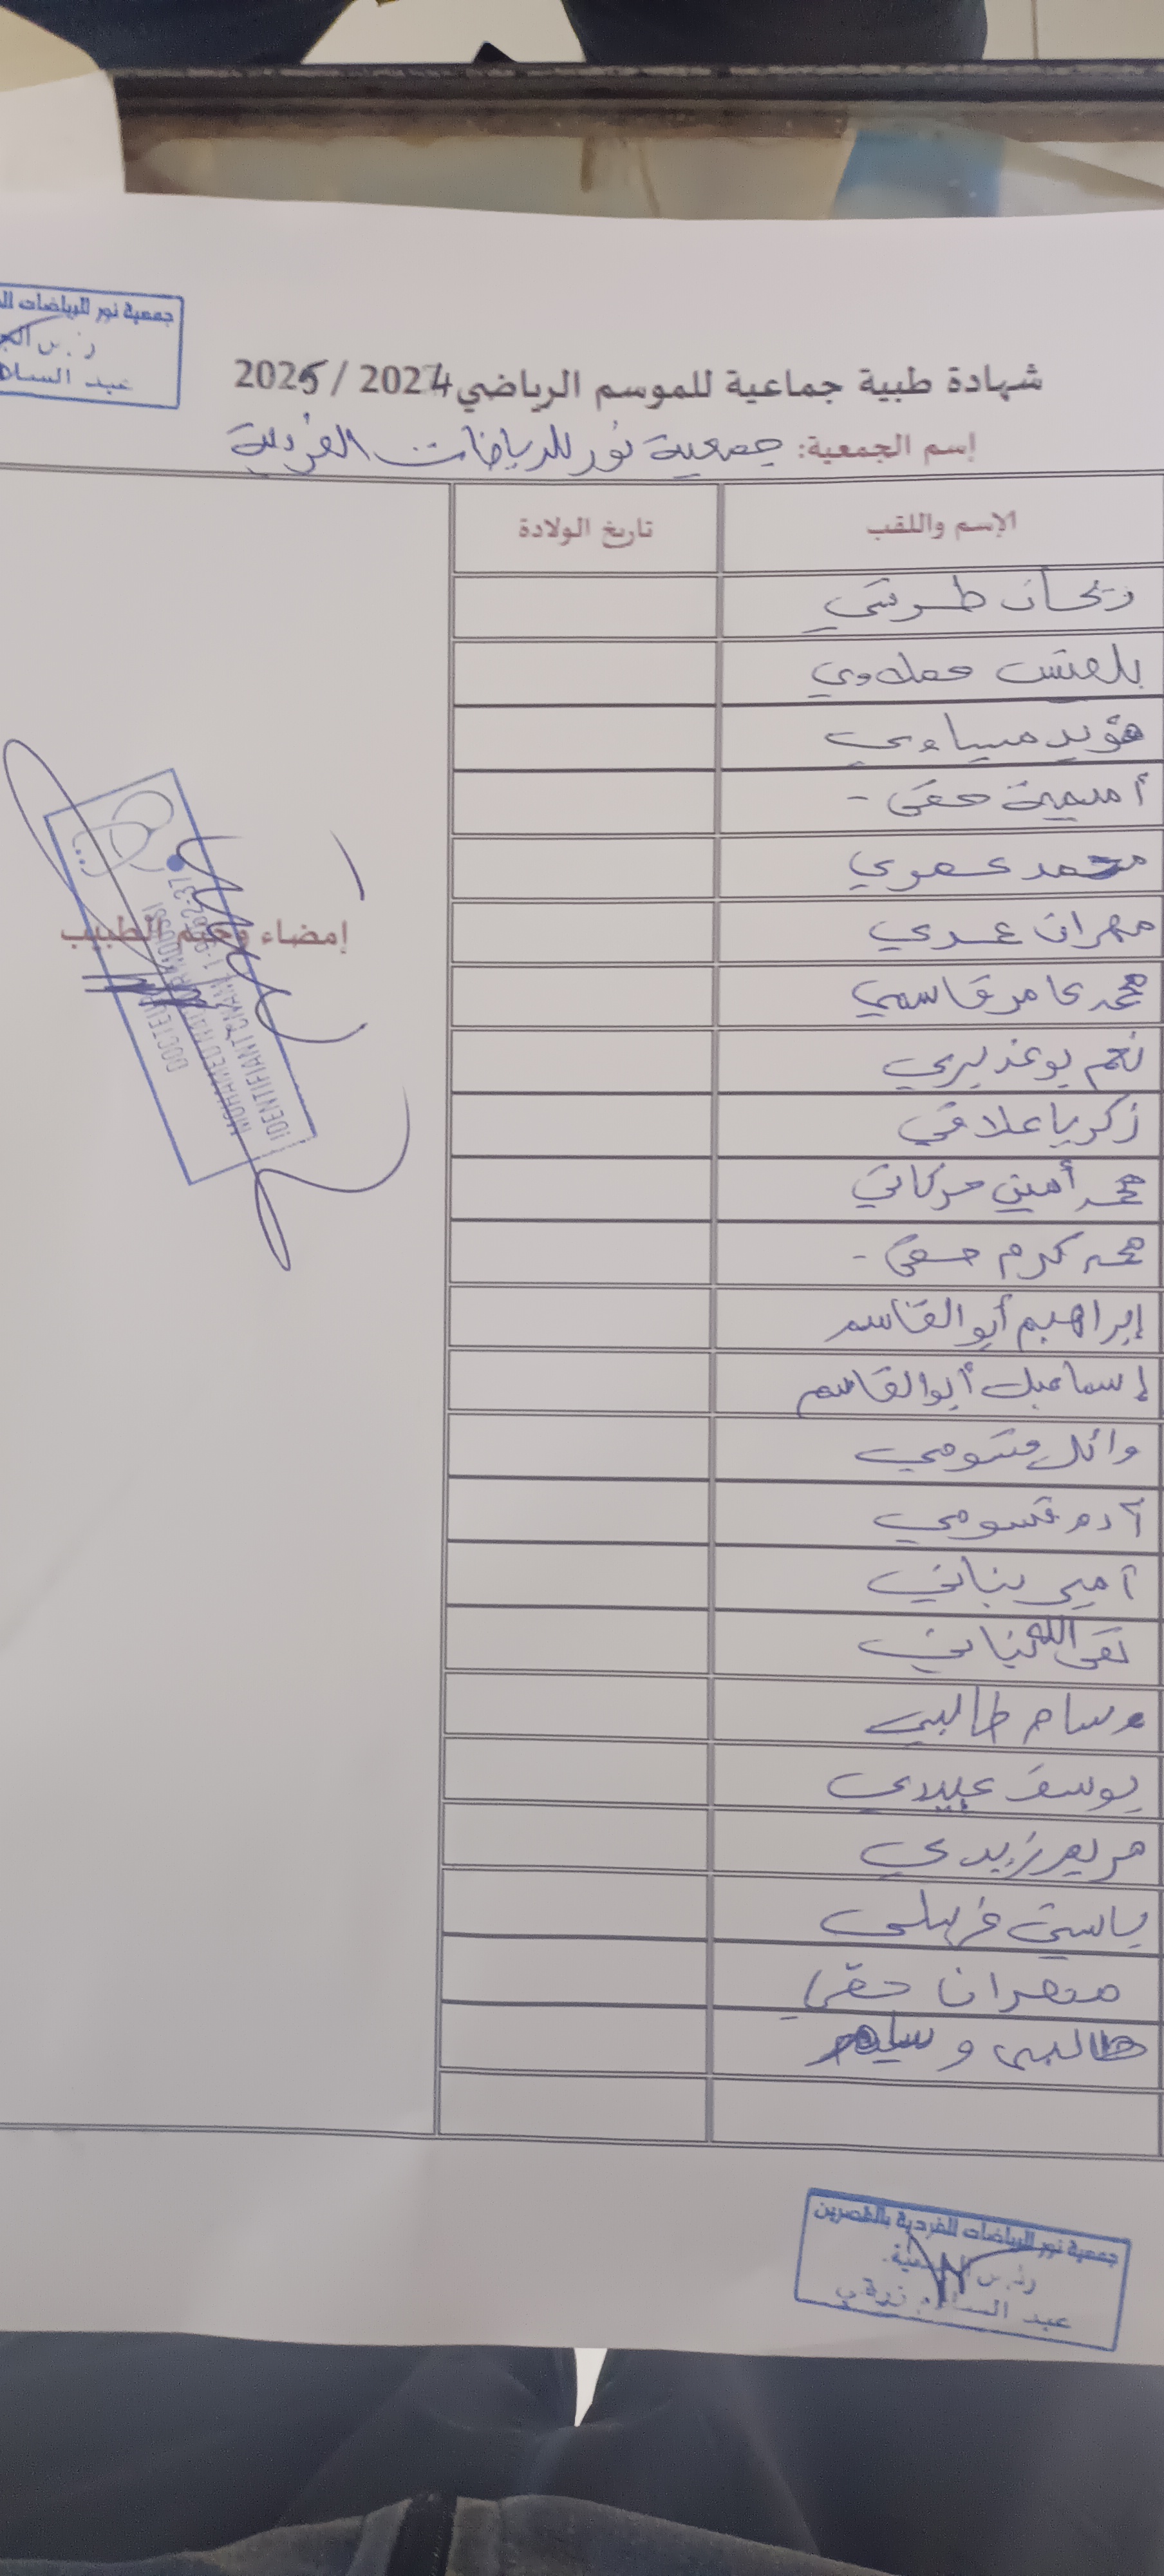 جمعية نور للرياضات
عبد السلا
شهادة طبية جماعية للموسم الرياضي 2024 / 2025
إسم الجمعية: جمعية نور للرياضات الفردية
الإسم واللقب تاريخ الولادة
ريحان طرشي
بلعيش حملاوي
مؤيد ميساوي
أميمة حقي -
محمد عمري
مهران عبدي
محمد عامر قاسمي
نعيم بوعذيري
زكريا علاقي
محمد أمين بركاتي
محمد كرم حقي -
إبراهيم أبو القاسم
إسماعيل أبو القاسم
وائل قسومي
آدم قسومي
أمير بناني
تقى الله بناني
وسام طالبي
يوسف عبيدي
مريم زيدي
ياسين غرسلي
مهران حقي
طالبي وسيم
إمضاء وختم الطبيب
DOCTEUR
MOHAMED
IDENTIFIANT CNAM
جمعية نور للرياضات الفردية بالقصرين
عبد السلام